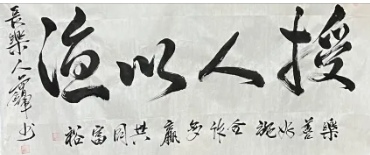 授人以渔
樂善水施合作多贏共同富裕
長樂人書